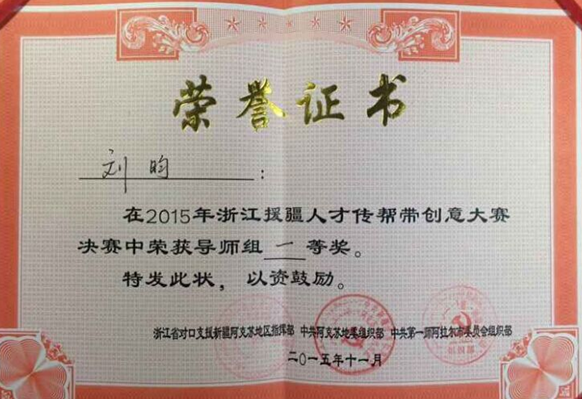 荣誉证书
刘昀:
在2015年浙江援疆人才传帮带创意大赛
决赛中荣获导师组一等奖。
特发此状，以资鼓励。
浙江省对口支援新疆阿克苏地区指挥部 中共阿克苏地委组织部 中共第一师阿拉尔市委员会组织部
二〇一五年十一月